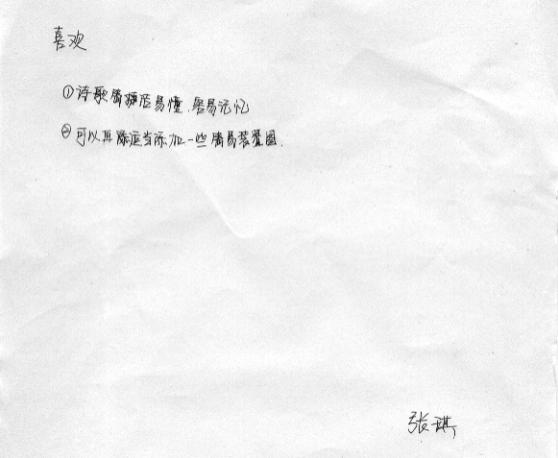 喜欢
①诗歌简短易懂,容易记忆
②可以再适当添加一些简易装置图.
张琪